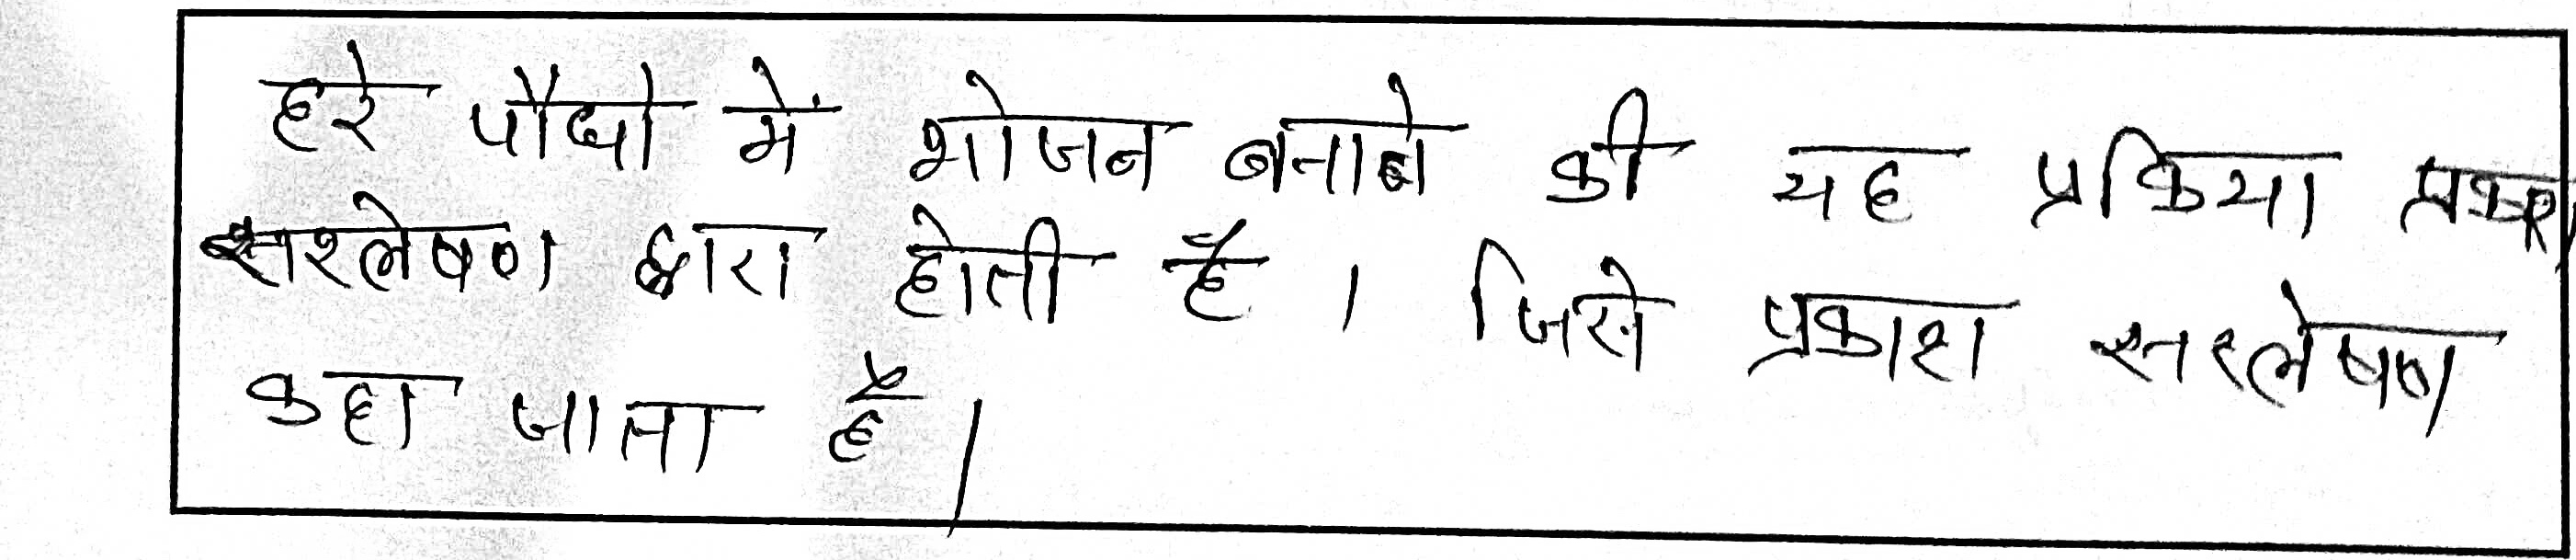 हरे पौधो में भोजन बनाने की यह प्रकिया प्रकाश
सश्लेषण द्वारा होती है । जिसे प्रकाश सश्लेषण
कहा जाता है ।